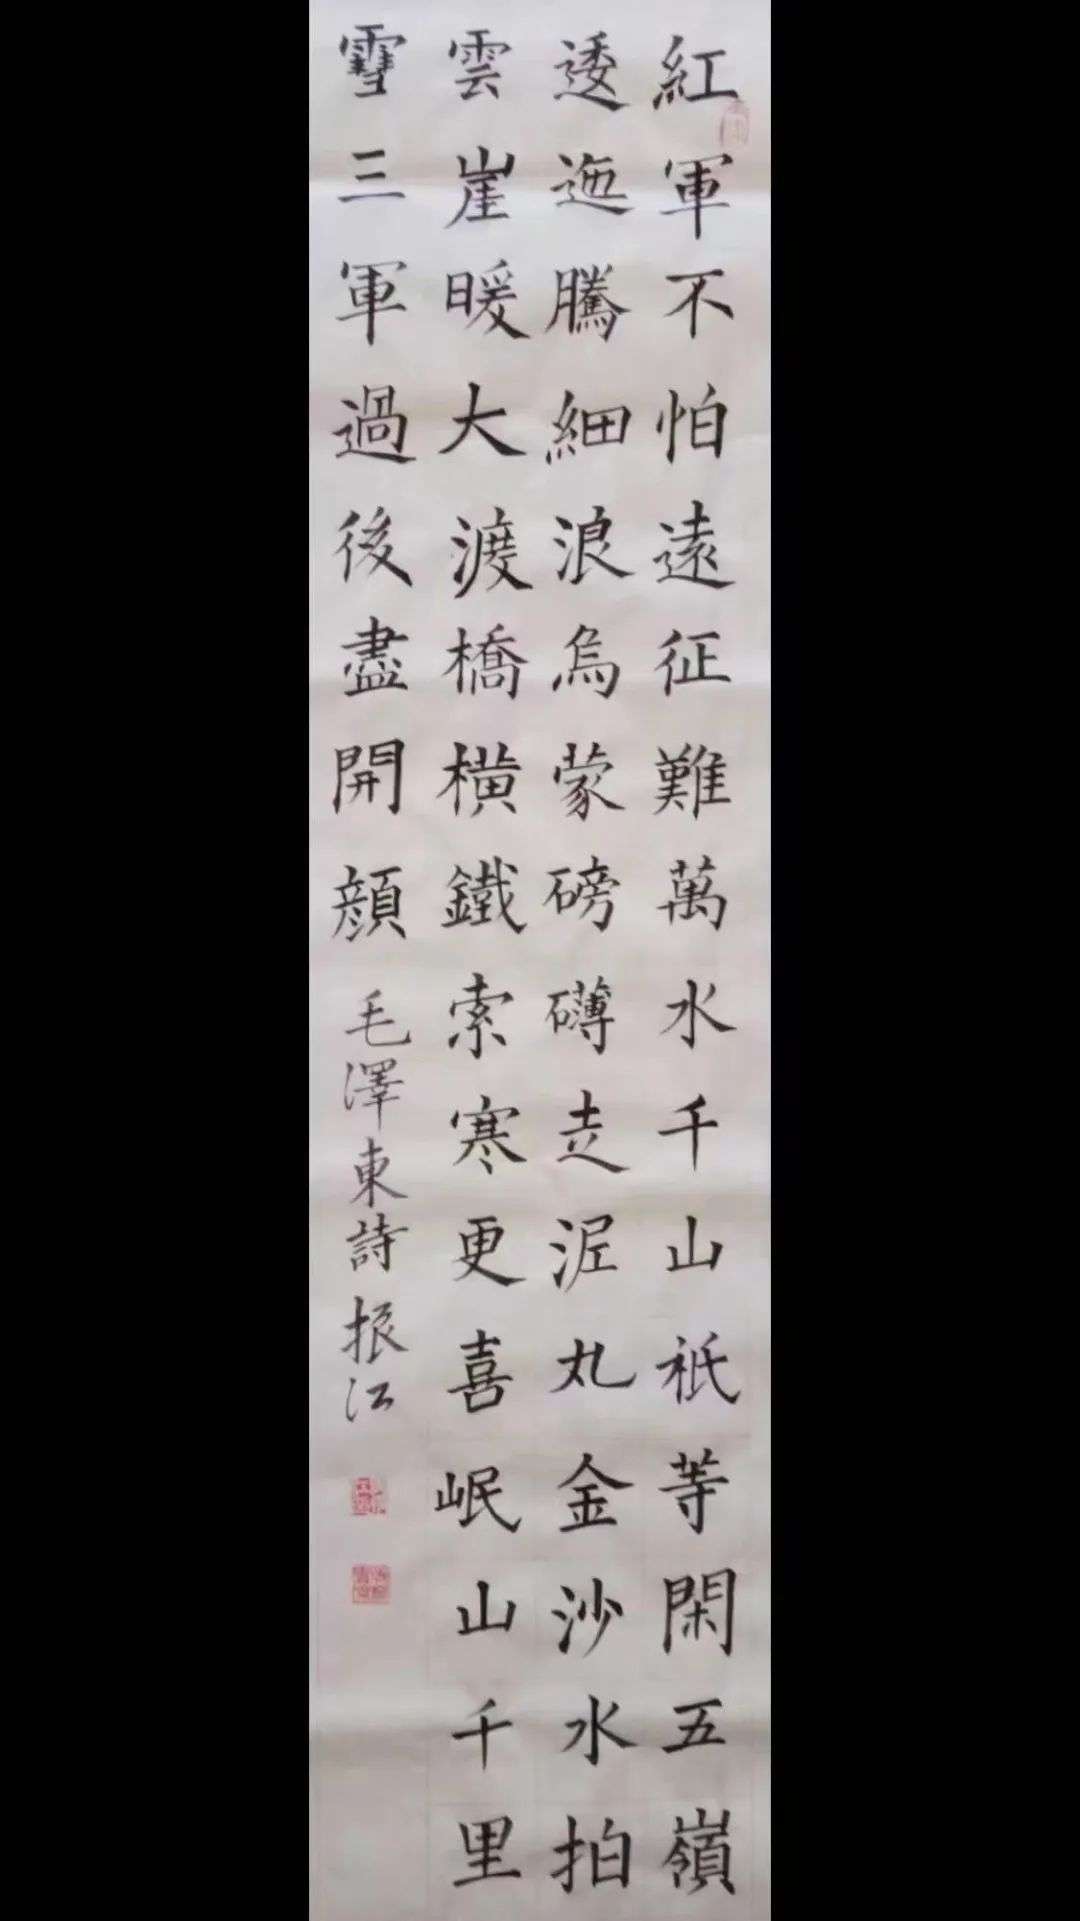 紅軍不怕遠征難萬水千山祇等閑五嶺
逶迤騰細浪烏蒙磅礴走泥丸金沙水拍
雲崖暖大渡橋橫鐵索寒更喜岷山千里
雪三軍過後盡開顏
毛澤東詩振江